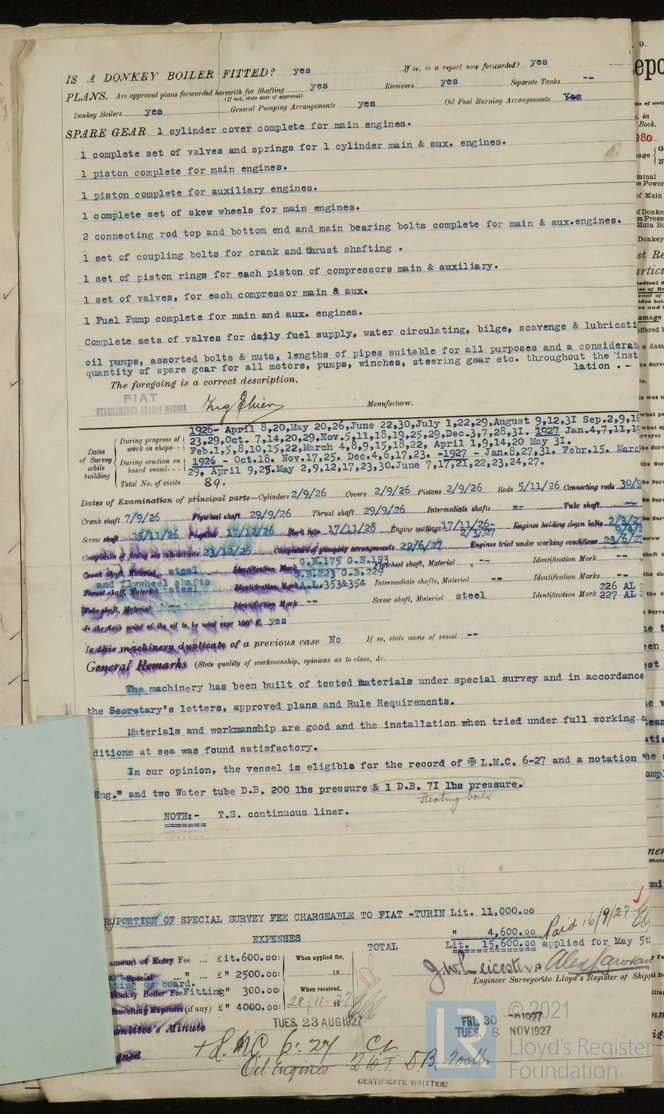 IS A DONKEY BOILER FITTED? yes If so, is a report now forwarded? yes
PLANS. Are approved plans forwarded herewith for Shafting yes Receivers yes Separate Tanks --
(If not, state date of approval)
Donkey Boilers yes General Pumping Arrangements yes Oil Fuel Burning Arrangements Yes
SPARE GEAR 1 cylinder cover complete for main engines.
1 complete set of valves and springs for 1 cylinder main & aux. engines.
1 piston complete for main engines.
1 piston complete for auxiliary engines.
1 complete set of skew wheels for main engines.
2 connecting rod top and bottom end and main bearing bolts complete for main & aux.engines.
1 set of coupling bolts for crank and thrust shafting .
1 set of piston rings for each piston of compressors main & auxiliary.
1 set of valves, for each compressor main & aux.
1 Fuel Pump complete for main and aux. engines.
Complete sets of valves for daily fuel supply, water circulating, bilge, scavenge & lubricati
oil pumps, assorted bolts & nuts, lengths of pipes suitable for all purposes and a considerab
quantity of spare gear for all motors, pumps, winches, steering gear etc. throughout the inst
lation . -
The foregoing is a correct description,
FIAT
STABILIMENTO GRANDI MOTORI
Manufacturer.
Dates of Survey while building
During progress of work in shops - - 1926- April 8,20,May 20,26,June 22,30,July 1,22,29,August 9,12,31 Sep.2,9,16
23,29,Oct. 7,14,20,29,Nov.5,11,18,19,25,29,Dec.3,7,28,31. 1927 Jan.4,7,11,1
Feb.1,5,8,10,15,22,March 4,8,9,15,18,22, April 1,9,14,20 May 31.
During erection on board vessel - - - 1926 - Oct.18. Nov.17,25. Dec.4,6,17,23. -1927 - Jan.8,27,31. Febr.15. Marc
29, April 9,25.May 2,9,12,17,23,30.June 7,17,21,22,23,24,27.
Total No. of visits 89.
Dates of Examination of principal parts—Cylinders 2/9/26 Covers 2/9/26 Pistons 2/9/26 Rods 5/11/26 Connecting rods 30/9
Crank shaft 7/9/26 Flywheel shaft 29/9/26 Thrust shaft 29/9/26 Intermediate shafts -- Tube shaft --
Screw shaft 25/11/26 Propeller 17/12/26 Stern tube 17/11/26 Engine seatings 17/11/26- Engines holding down bolts 2/3/2
Completion of fitting sea connections 23/12/26 Completion of pumping arrangements 22/6/27 Engines tried under working conditions 23/6/2
Crank shaft, Material steel Identification Mark G.B.175 G.B.193 Flywheel shaft, Material -- Identification Mark --
and flywheel shafts G.B.223 G.B.229
Thrust shaft, Material steel Identification Mark A.L.353&354 Intermediate shafts, Material -- Identification Marks --
Tube shaft, Material -- Identification Mark -- Screw shaft, Material steel Identification Mark 226 AL
227 AL
Is the flash point of the oil to be used over 150° F. yes
Is this machinery duplicate of a previous case No If so, state name of vessel --
General Remarks (State quality of workmanship, opinions as to class, &c.
The machinery has been built of tested materials under special survey and in accordance
the Secretary's letters, approved plans and Rule Requirements.
Materials and workmanship are good and the installation when tried under full working
ditions at sea was found satisfactory.
In our opinion, the vessel is eligible for the record of ✠ L.M.C. 6-27 and a notation
Eng." and two Water tube D.B. 200 lbs pressure & 1 D.B. 71 lbs pressure.
Heating boiler
NOTE:- T.S. continuous liner.
ROPORTION OF SPECIAL SURVEY FEE CHARGEABLE TO FIAT -TURIN Lit. 11,000.00
" 4,600.00
EXPENSES TOTAL Lit. 15,600.00 applied for May 5th
Paid 16/9/27
amount of Entry Fee ... £it.600.00: When applied for,
Special ... " £" 2500.00: 19
ting on board.
Donkey Boiler Fee Fitting" 300.00: When received,
Travelling Expenses (if any) £" 4000.00: 28.11.27
Engine Surveyor to Lloyd's Register of Shipp
mittee's Minute TUES. 23 AUG 1927
FRI. 30
TUES. 8 NOV 1927
+ L.M.C 6.27 CL
Oil Engines 2 W.T. D.B. 200lb
CERTIFICATE WRITTEN:
© 2021
Lloyd's Register
Foundation